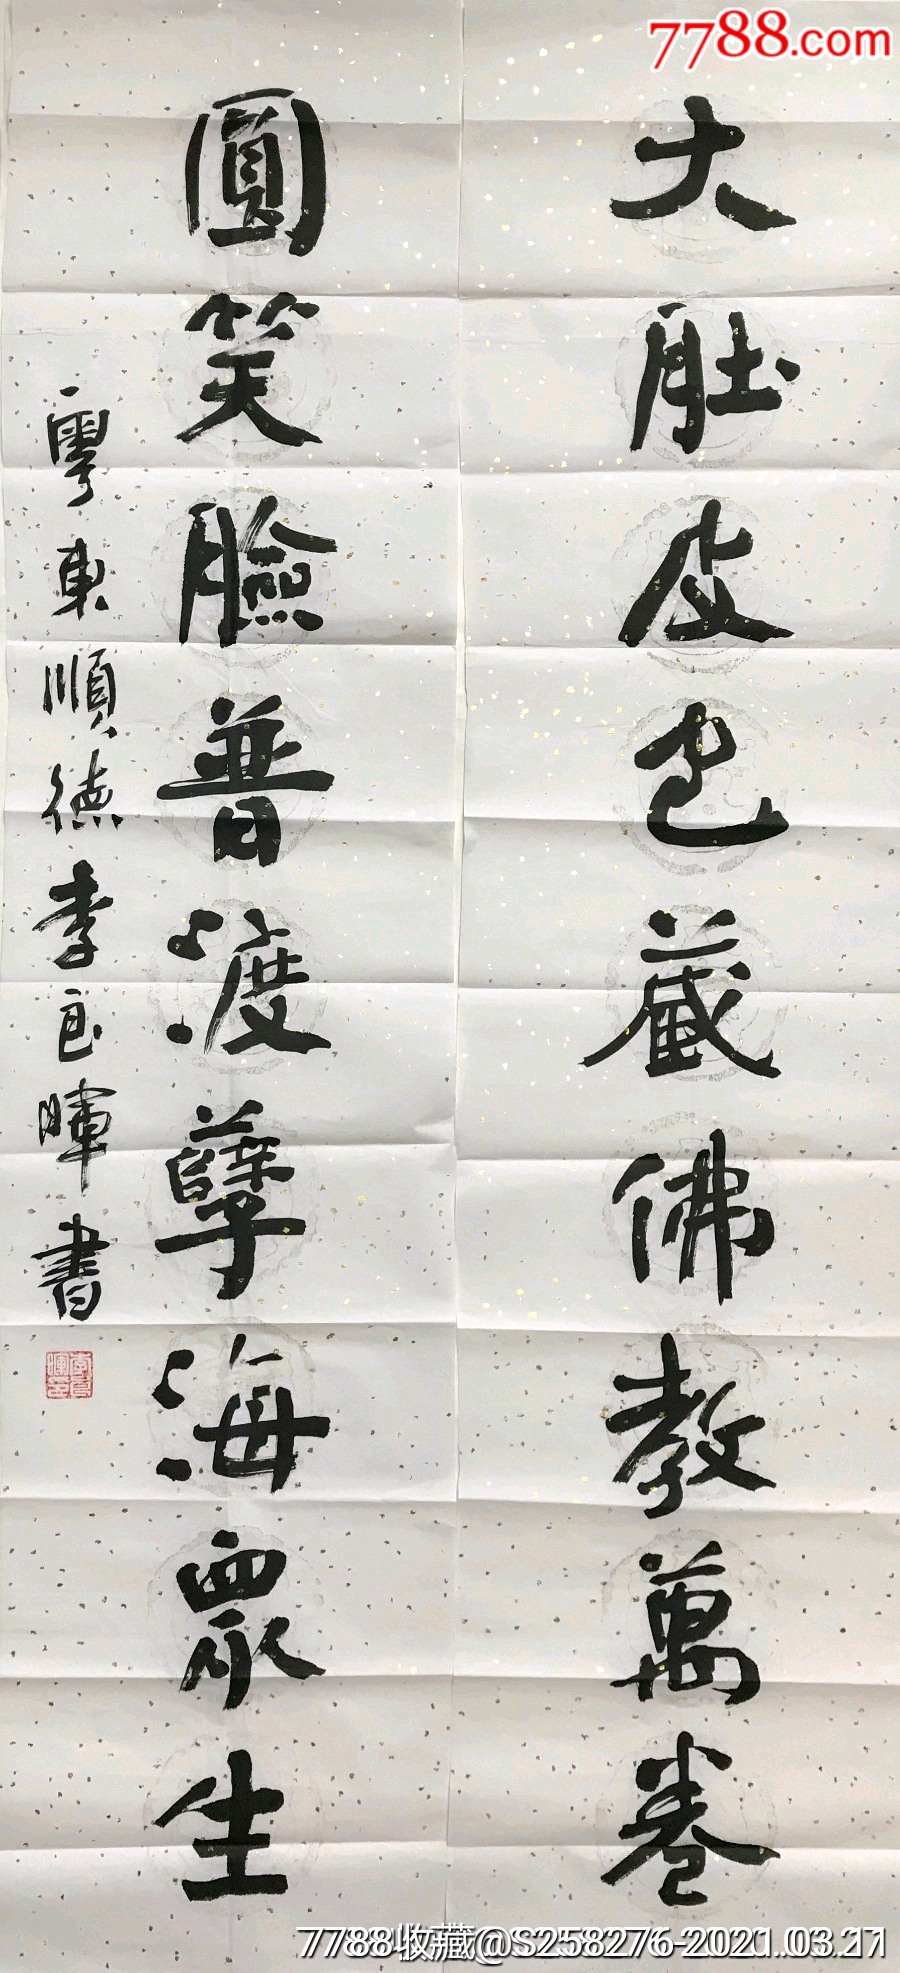 7788.com
大肚皮包藏佛教萬卷
圓笑臉普渡孽海眾生
粵東順德李良暉書
7788收藏@S258276-2021.03.27